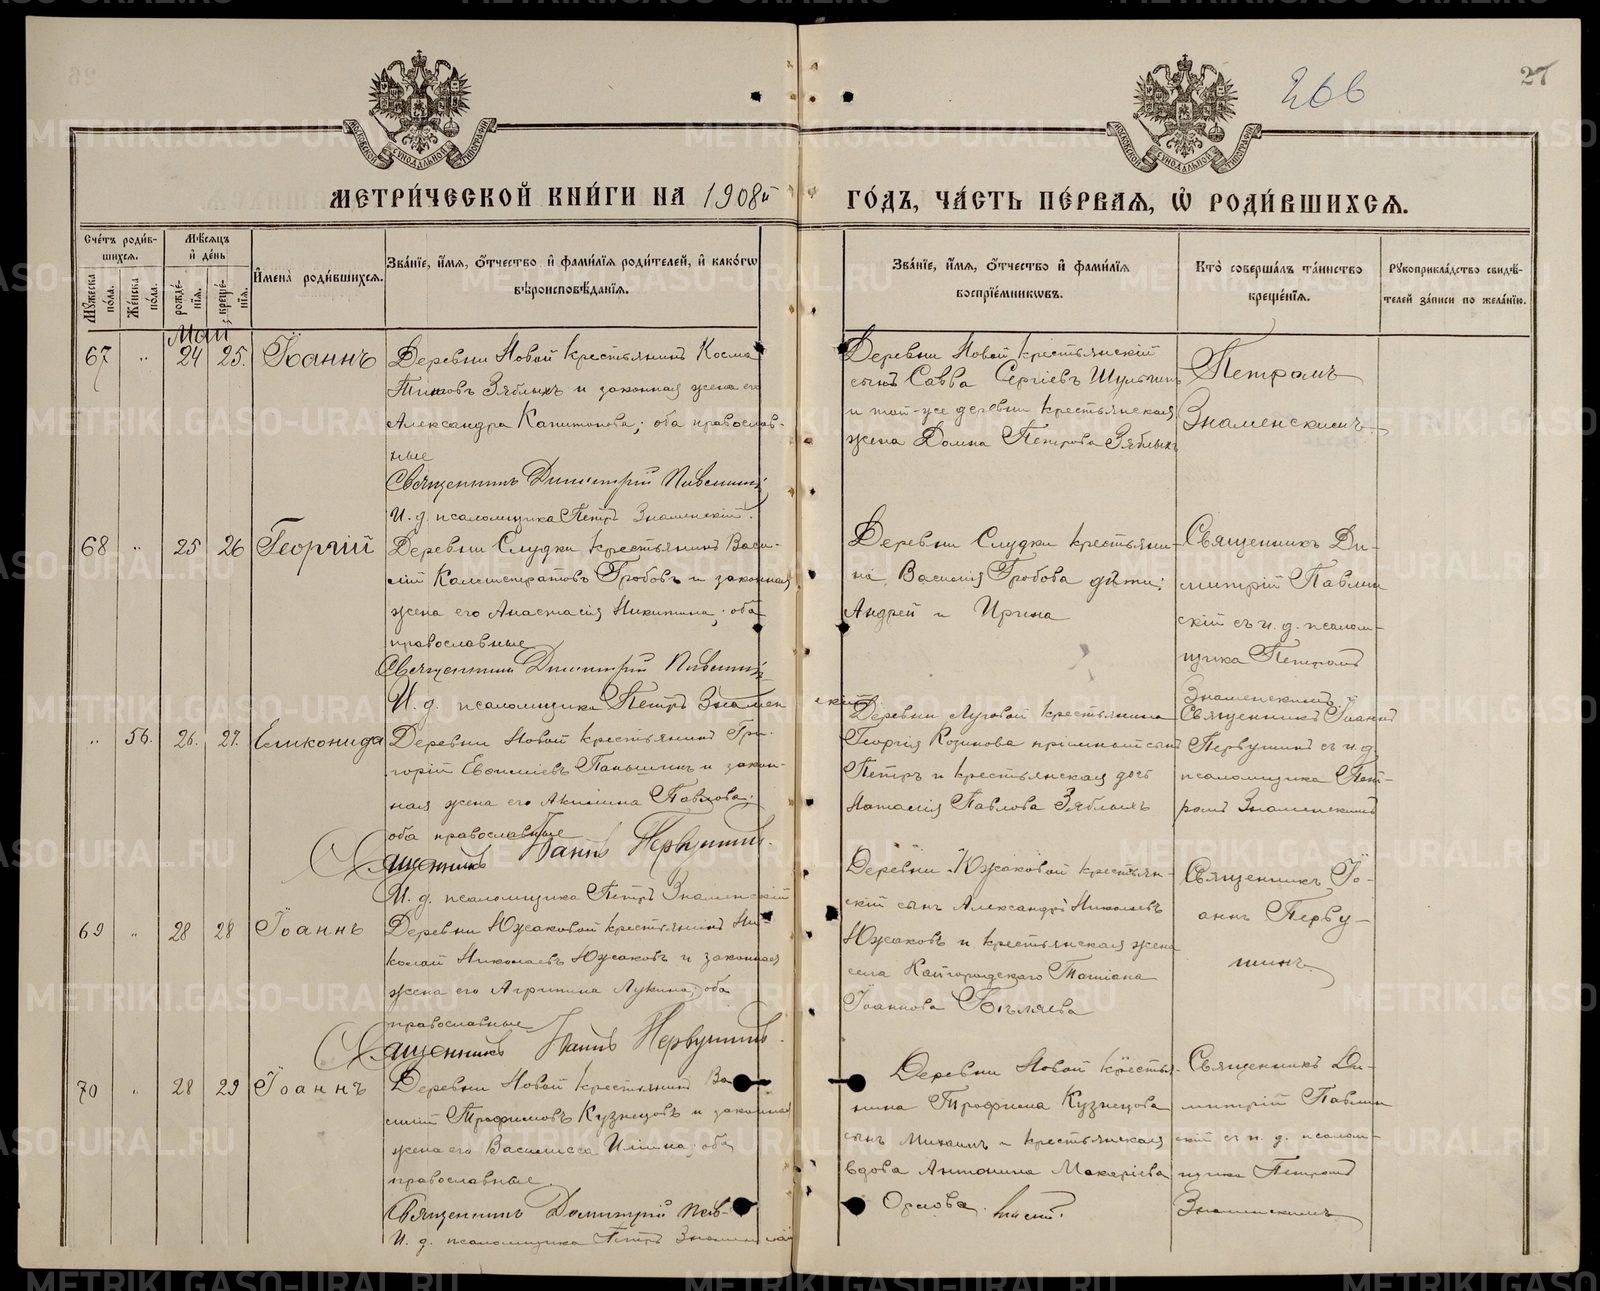 266
27
МОСКОВСКОЙ СѴНОДАЛЬНОЙ ТИПОГРАФІИ
МОСКОВСКОЙ СѴНОДАЛЬНОЙ ТИПОГРАФІИ
МЕТРИ́ЧЕСКОЙ КНИ́ГИ НА 1908й
ГО́ДЪ, ЧА́СТЬ ПЕ́РВАѦ, Ѡ҆ РОДИ́ВШИХСѦ.
Сче́тъ роди́в-
шихсѧ.
Мꙋжеска по́ла.
Же́нска по́ла.
Мѣ́сѧцъ и҆ де́нь
рожде́-
нїѧ.
креще́-
нїѧ.
И҆мена̀ роди́вшихсѧ.
Зва́нїе, и҆́мѧ, ѻ҆́тчество и҆ фами́лїѧ роди́телей, и҆ како́гѡ
вѣроисповѣ́данїѧ.
Зва́нїе, и҆́мѧ, ѻ҆́тчество и҆ фами́лїѧ
воспрїе́мникѡвъ.
Кто̀ соверша́лъ та́инство
креще́нїѧ.
Рꙋкоприкла́дство свидѣ́-
телей за́писи по жела́нїю.
Май
67 " 24 25. Іоаннъ
Деревни Новой крестьянинъ Косма
Титовъ Зяблыхъ и законная жена его
Александра Капитонова; оба православ-
ные
Священникъ Димитрій
И. д. псаломщика Петръ Знаменскій.
Деревни Новой крестьянскій
сынъ Савва Сергіевъ
и той-же деревни крестьянская
жена Домна Петрова Зяблыхъ
Петромъ
Знаменскимъ.
68 " 25 26 Георгій
Деревни Слудки крестьянинъ Васи-
лій Каллистратовъ Гробовъ и законная
жена его Анастасія Никитина; оба
православные
Священникъ Димитрій
И. д. псаломщика Петръ Знамен
скій
Деревни Слудки крестьяни-
на Василія Гробова дѣти:
Андрей и Ирина
Священникъ Ди-
митрій Павлин
скій съ и. д. псалом-
щика Петромъ
Знаменскимъ.
" 56. 26. 27. Еликонида
Деревни Новой крестьянинъ Гри-
горій Евсиміевъ Паньшинъ и закон-
ная жена его Акилина Павлова;
оба православные
Священникъ Іоаннъ Первушинъ.
И. д. псаломщика Петръ Знаменскій
Деревни Луговой крестьянина
Георгія Козикова пріемный сынъ
Петръ и крестьянская дочь
Наталія Павлова Зяблыхъ
Священникъ Іоаннъ
Первушинъ съ и. д.
псаломщика Пет-
ромъ Знаменскимъ
69 " 28 28 Іоаннъ
Деревни Южаковой крестьянинъ Ни-
колай Николаевъ Южаковъ и законная
жена его Агрипина Лукина; оба
православные
Священникъ Іоаннъ Первушинъ.
Деревни Южаковой крестьян-
скій сынъ Александръ Николаевъ
Южаковъ и крестьянская жена
села Кайгородскаго Татіана
Іоаннова Бѣляева
Священникъ Іо-
аннъ Перву-
шинъ.
70 " 28 29 Іоаннъ
Деревни Новой крестьянинъ Ва-
силій Трофимовъ Кузнецовъ и законная
жена его Василисса Ильина; оба
православные.
Священникъ Димитрій Пав-
И. д. псаломщика Петръ Знаменскій
Деревни Новой крестья-
нина Трофима Кузнецова
сынъ Михаилъ и крестьянская
вдова Антонина Макаріева
Орлова.
Священникъ Ди-
митрій Павлин
скій съ и. д. псалом-
щика Петромъ
Знаменскимъ
METRIKI.GASO-URAL.RU